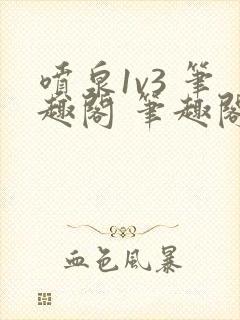 噴泉1v3 筆
趣閣 筆趣閣
血色风暴